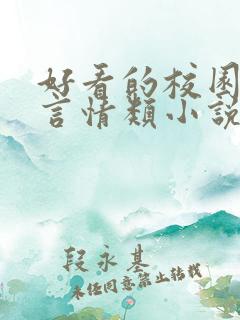 好看的校园
言情类小說
段永基
未经同意禁止转载